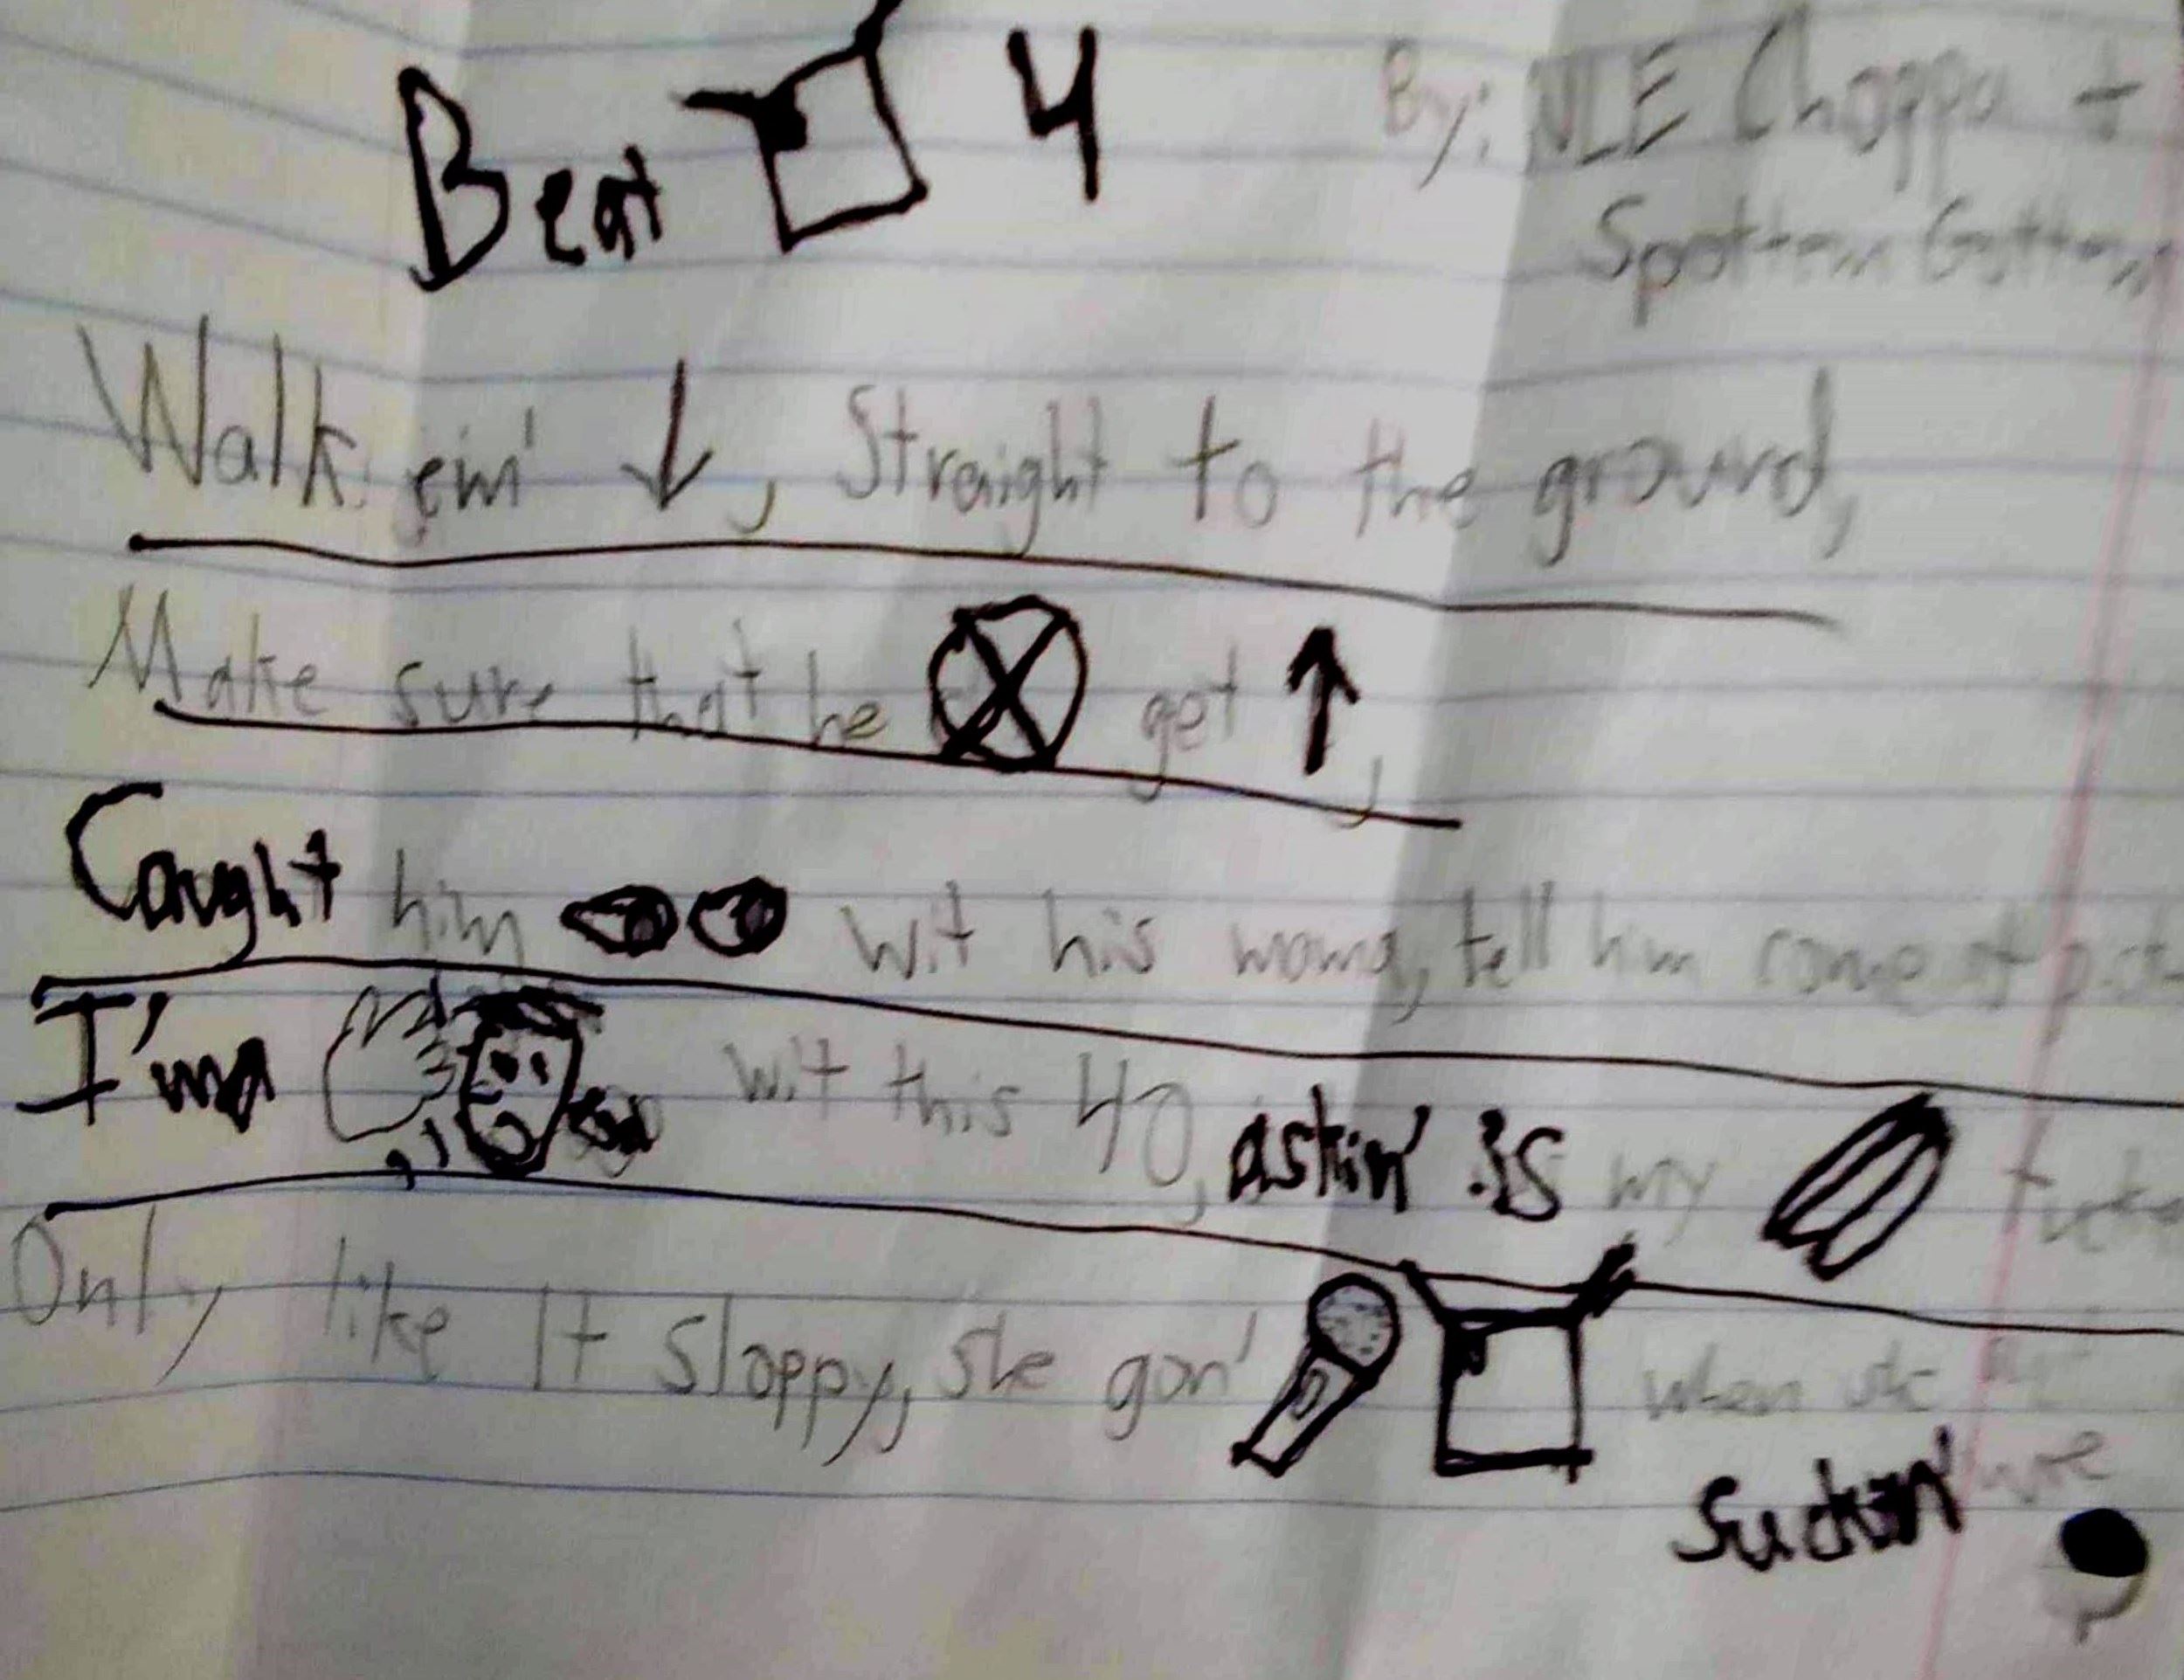 Beat 4
By: NLE Choppa +
Spottem Gottem
Walk em' ↓, Straight to the ground,
Make sure that he get ↑,
Caught him wit his mama, tell him come
I'ma wit this 40, askin' is my
Only like It Sloppy, she gon' when she
Suckin'